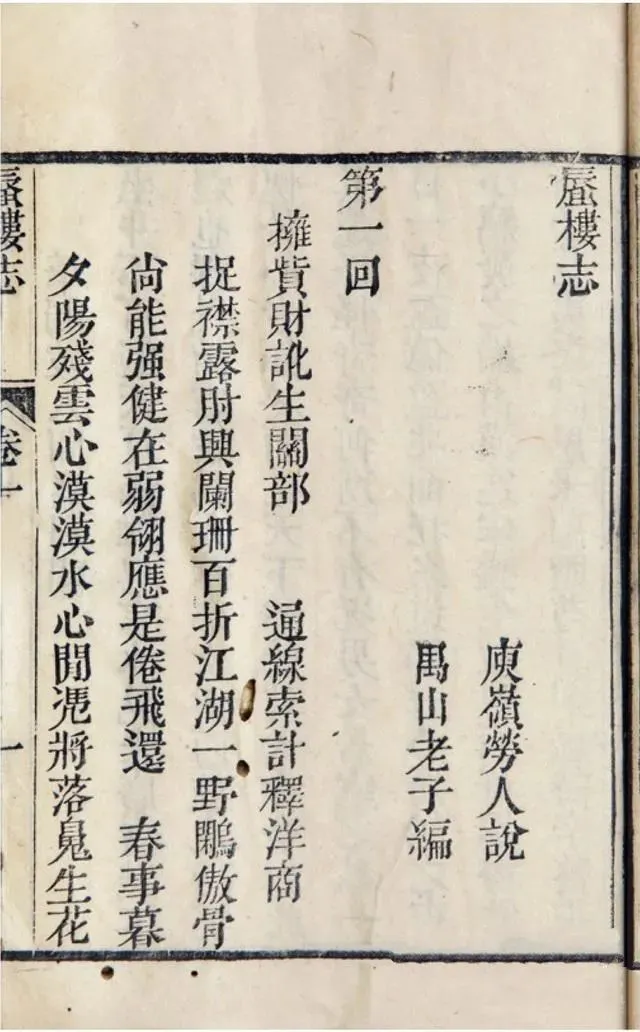 蜃樓志
庾嶺勞人說
禺山老子編
第一回
擁貲財訛生關部　通線索計釋洋商
捉襟露肘興闌珊百折江湖一野鷳傲骨
尙能强健在弱翎應是倦飛還　春事暮
夕陽殘雲心漠漠水心閒凴將落鬼生花
蜃樓志　卷一　一